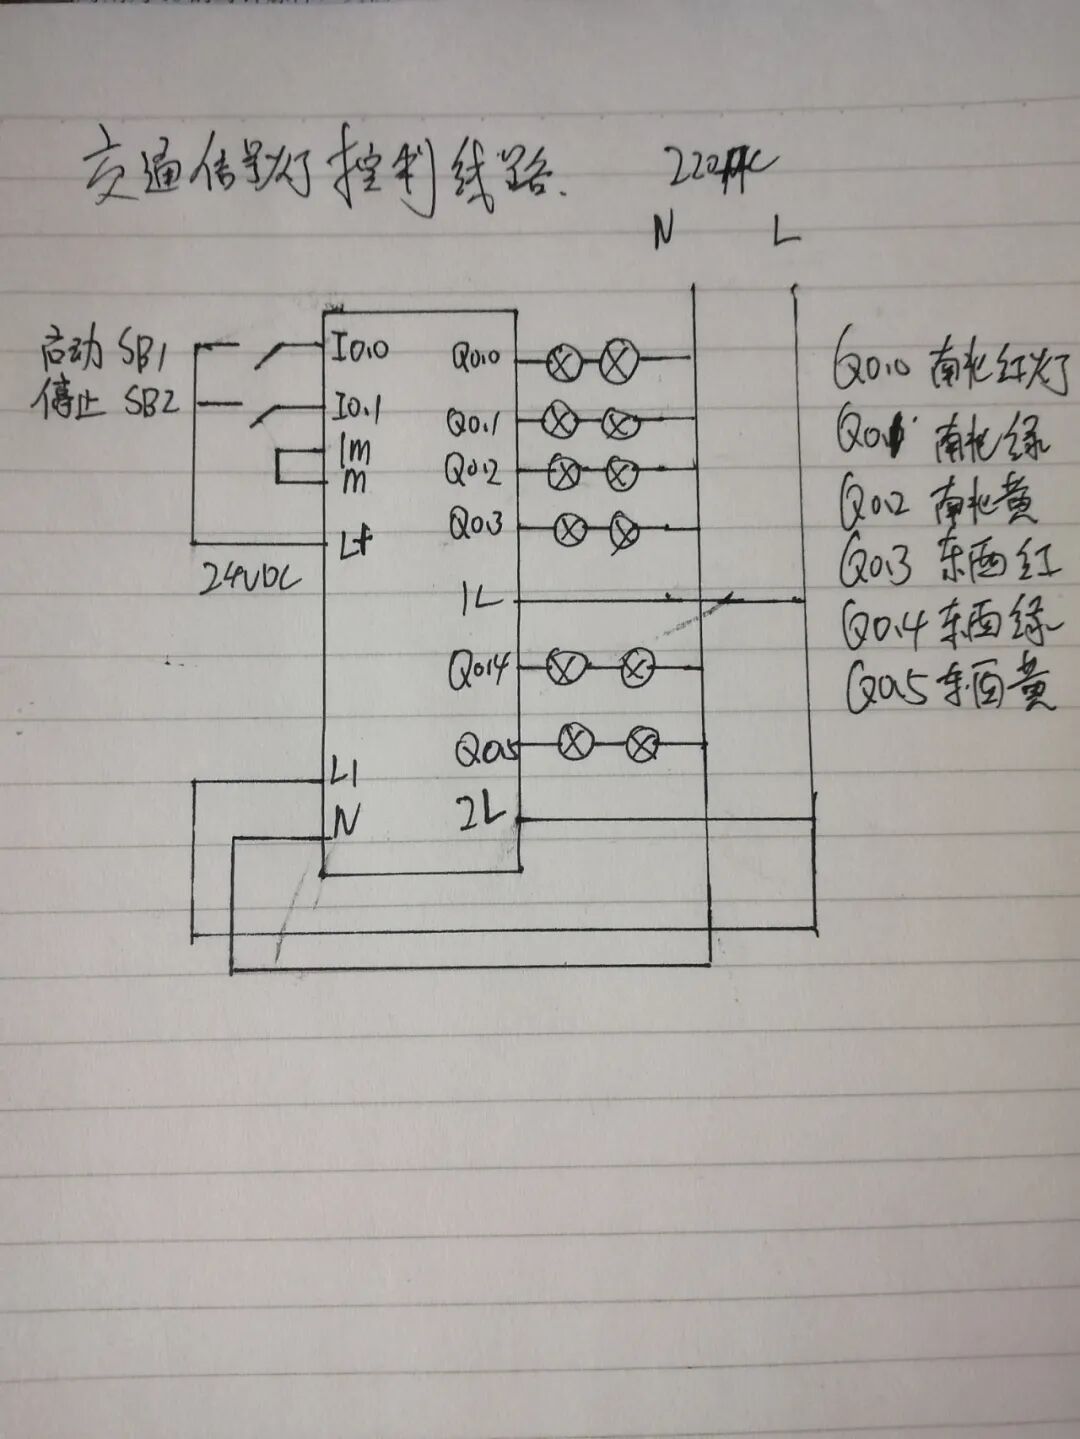 交通信号灯控制线路.
220AC
N L
启动 SB1
停止 SB2
I0.0
I0.1
1m
m
L+
24VDC
L1
N
Q0.0
Q0.1
Q0.2
Q0.3
1L
Q0.4
Q0.5
2L
Q0.0 南北红灯
Q0.1 南北绿
Q0.2 南北黄
Q0.3 东西红
Q0.4 东西绿
Q0.5 东西黄